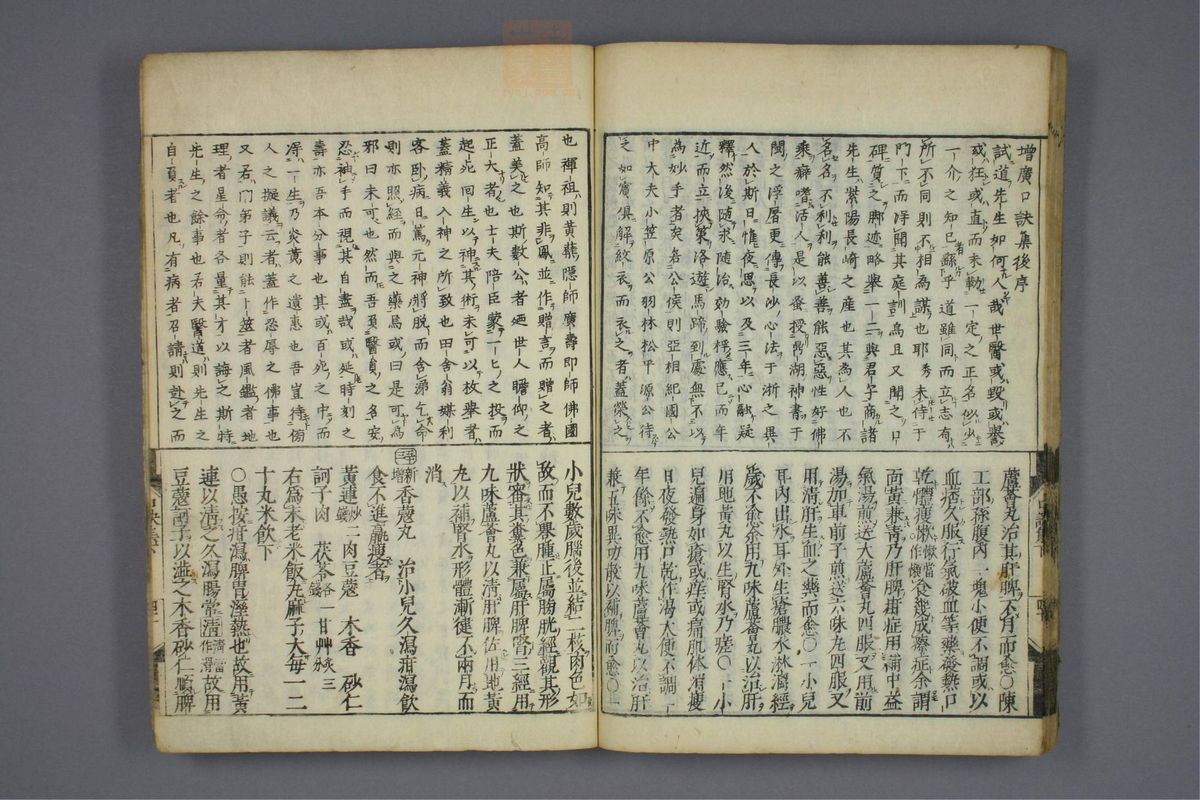 增廣口訣集後序
試道先生如何人哉世醫或毀或譽
或狂或直而未勒一定之正名似少
一介之知已蘇乎道雖同而立志有
所不同則不相為謀也耶秀未侍于
門下而浮聞其庭訓焉且又聞之口
碑質之脚迹略舉一二與君子商諸
先生紫陽長崎之產也其為人也不
名名不利利能善善能惡惡性好佛
乘癖嗜活人是以蚤授鼎湖神書于
閩之浮屠更傳長沙心法于浙之異
人於斯日惟夜思以及三年心融疑
釋然後隨求隨治効驗桴應已而年
近而立挾策洛遊馬蹄到處無不以
為妙手者矣各公侯則亞相紀國公
中大夫小笠原公羽林松平源公待
之如賓俱解紋衣而衣之者蓋榮之
蘆薈丸治其肝脾不月而愈○陳
工部孫腹內一塊小便不調或以
血痞久服行氣破血等藥發熱口
乾體瘦懶食幾成瘵症余謂
面黃兼青乃肝脾疳症用補中益
氣湯煎送大蘆薈丸四服又用前
湯加車前子煎送六味丸四服又
用清肝生血之藥而愈○一小兒
耳內出水耳外生瘡膿水淋漓經
歲不愈余用九味蘆薈丸以治肝
用地黃丸以生腎水乃瘥○一小
兒遍身如瘡或痒或痛肌体消瘦
日夜發熱口乾作渴大便不調
年餘不愈用九味蘆薈丸以治肝
兼五味異功散以補脾而愈○一
也禪祖則黃蘗隱師廣壽即師佛國
高師知其非鳳並作贈言而贈之者
蓋美之也斯數公者廼世人瞻仰之
正大者也士夫陪臣蒙一七之投而
起死回生以神其術未可以枚舉者
蓋精義入神之所致也田舍翁媒利
客臥病日篤元神將脫而含涕乞命
則亦照經而與之藥焉或曰是可為
邪曰未可也然而吾負醫員之名安
忍袖手而視其自盡哉或延時刻之
壽亦吾本分事也其或百死之中而
得一生乃炎黃之遺惠也吾豈待傍
人之擬議云者蓋作忍辱之佛事也
又若門弟子則能筮者風鑑者地
理者星命者各量其才以誨之斯特
先生之餘事也若夫醫道則先生之
自負者也凡有病者召請則赴之而
小兒數歲腦後並結二核肉色如
故而不舉腫止屬膀胱經觀其形
狀審其糞色兼屬肝脾腎三經用
九味蘆薈丸以清肝脾佐用地黃
丸以補腎水形體漸健不兩月而
消
新增香蔻丸　治小兒久瀉疳瀉飲
食不進羸瘦者
黃連炒三錢　肉豆蔻　木香　砂仁
訶子肉　茯苓各一錢　甘艸炙三分
右為末老米飯丸麻子大每一二
十丸米飲下
○愚按疳瀉脾胃溼熱也故用黃
連以清之久瀉腸常清故用
豆蔻訶子以澁之木香砂仁順脾